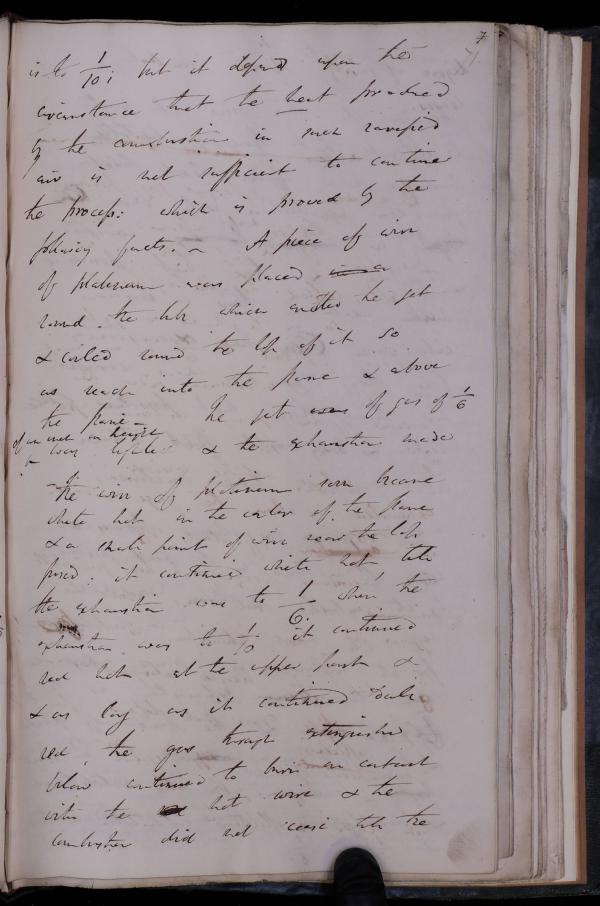 7
is to 1/10; but it depend upon the
circumstance that the heat produced
by the combustion in such rarefied
air is not sufficient to continue
the process: which is proved by the
following facts. - A piece of wire
of platinum was placed
round the tube which the jet
& coiled round the top of it so
as reach into the flame & above
the flame - The jet of gas of 1/6
of an inch in height
was lighted & the exhaustion made
- The wire of platinum soon became
white hot in the centre of the flame
& a small point of wire near the top
fused: it continued white hot, till
the exhaustion was to 1/6 when the
exhaustion was to 1/10 it continued
red hot at the upper part &
& as long as it continued dull
red, the gas though extinguished
below continued to burn in contact
with the hot wire & the
combustion did not cease till the